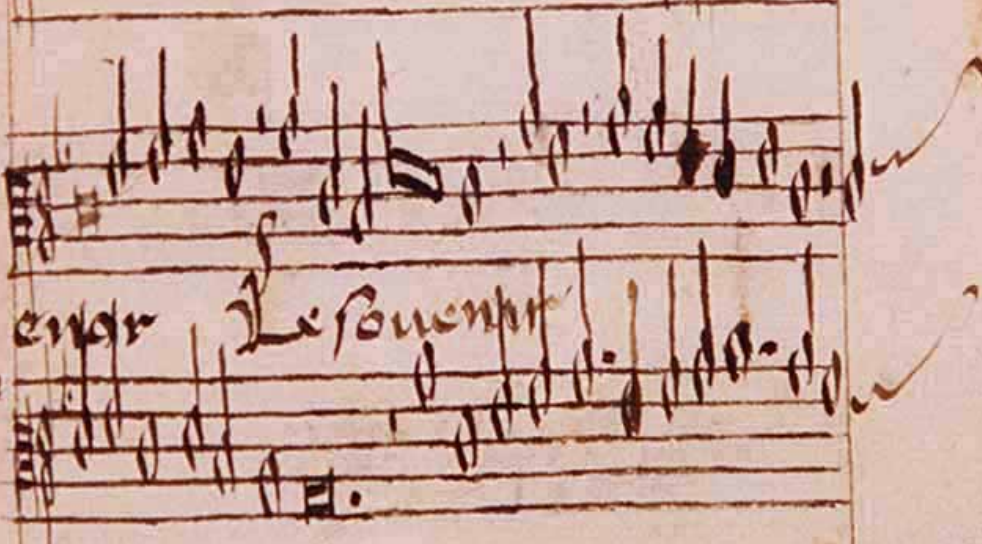 enor Le souenir